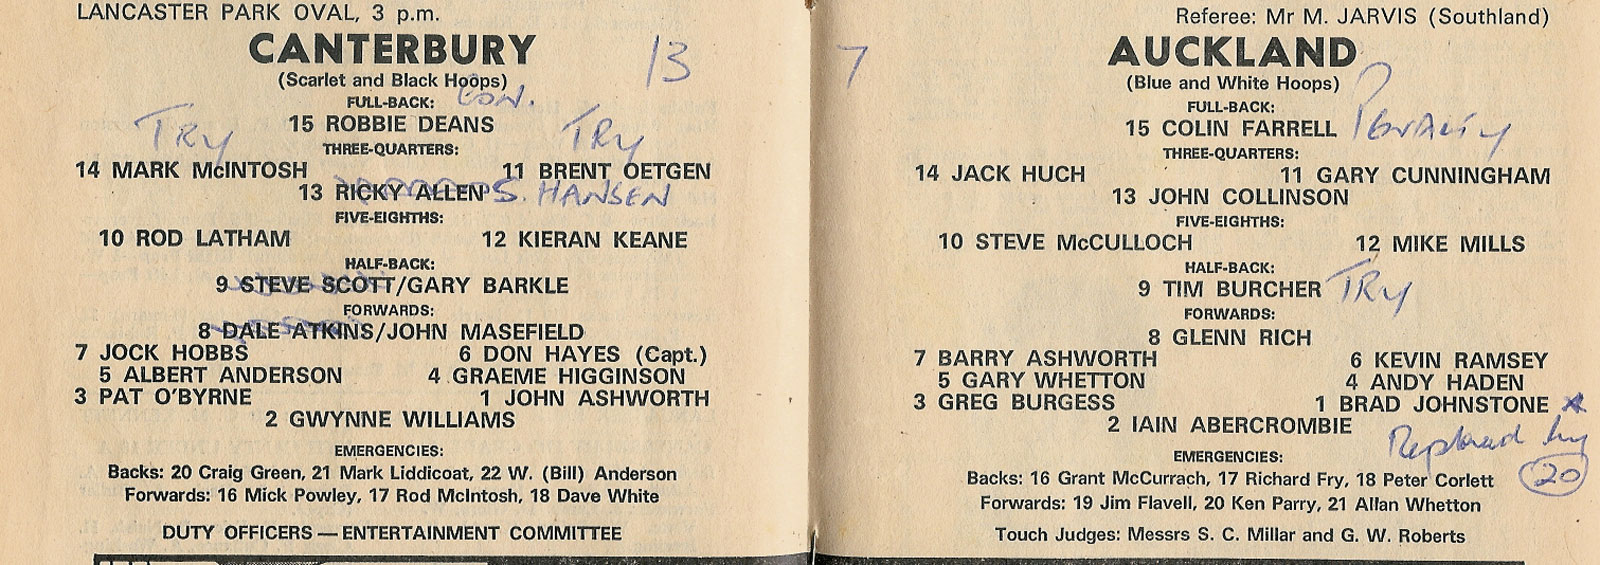 LANCASTER PARK OVAL, 3 p.m.
CANTERBURY 13
(Scarlet and Black Hoops)
FULL-BACK: CON.
15 ROBBIE DEANS
TRY TRY
THREE-QUARTERS:
14 MARK McINTOSH 11 BRENT OETGEN
13 RICKY ALLEN S. HANSEN
FIVE-EIGHTHS:
10 ROD LATHAM 12 KIERAN KEANE
HALF-BACK:
9 STEVE SCOTT/GARY BARKLE
FORWARDS:
8 DALE ATKINS/JOHN MASEFIELD
7 JOCK HOBBS 6 DON HAYES (Capt.)
5 ALBERT ANDERSON 4 GRAEME HIGGINSON
3 PAT O'BYRNE 1 JOHN ASHWORTH
2 GWYNNE WILLIAMS
EMERGENCIES:
Backs: 20 Craig Green, 21 Mark Liddicoat, 22 W. (Bill) Anderson
Forwards: 16 Mick Powley, 17 Rod McIntosh, 18 Dave White
DUTY OFFICERS — ENTERTAINMENT COMMITTEE
Referee: Mr M. JARVIS (Southland)
7 AUCKLAND
(Blue and White Hoops)
FULL-BACK:
15 COLIN FARRELL PENALTY
THREE-QUARTERS:
14 JACK HUCH 11 GARY CUNNINGHAM
13 JOHN COLLINSON
FIVE-EIGHTHS:
10 STEVE McCULLOCH 12 MIKE MILLS
HALF-BACK:
9 TIM BURCHER TRY
FORWARDS:
8 GLENN RICH
7 BARRY ASHWORTH 6 KEVIN RAMSEY
5 GARY WHETTON 4 ANDY HADEN
3 GREG BURGESS 1 BRAD JOHNSTONE
2 IAIN ABERCROMBIE Replaced by
EMERGENCIES: 20
Backs: 16 Grant McCurrach, 17 Richard Fry, 18 Peter Corlett
Forwards: 19 Jim Flavell, 20 Ken Parry, 21 Allan Whetton
Touch Judges: Messrs S. C. Millar and G. W. Roberts